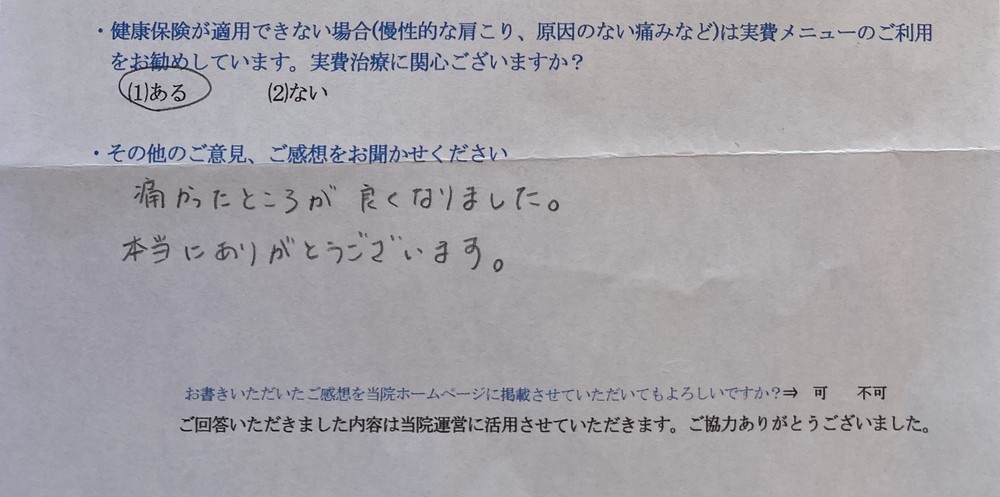 ・健康保険が適用できない場合(慢性的な肩こり、原因のない痛みなど)は実費メニューのご利用
をお勧めしています。実費治療に関心ございますか？
(1)ある　(2)ない
・その他のご意見、ご感想をお聞かせください
痛かったところが良くなりました。
本当にありがとうございます。
お書きいただいたご感想を当院ホームページに掲載させていただいてもよろしいですか？⇒　可　不可
ご回答いただきました内容は当院運営に活用させていただきます。ご協力ありがとうございました。